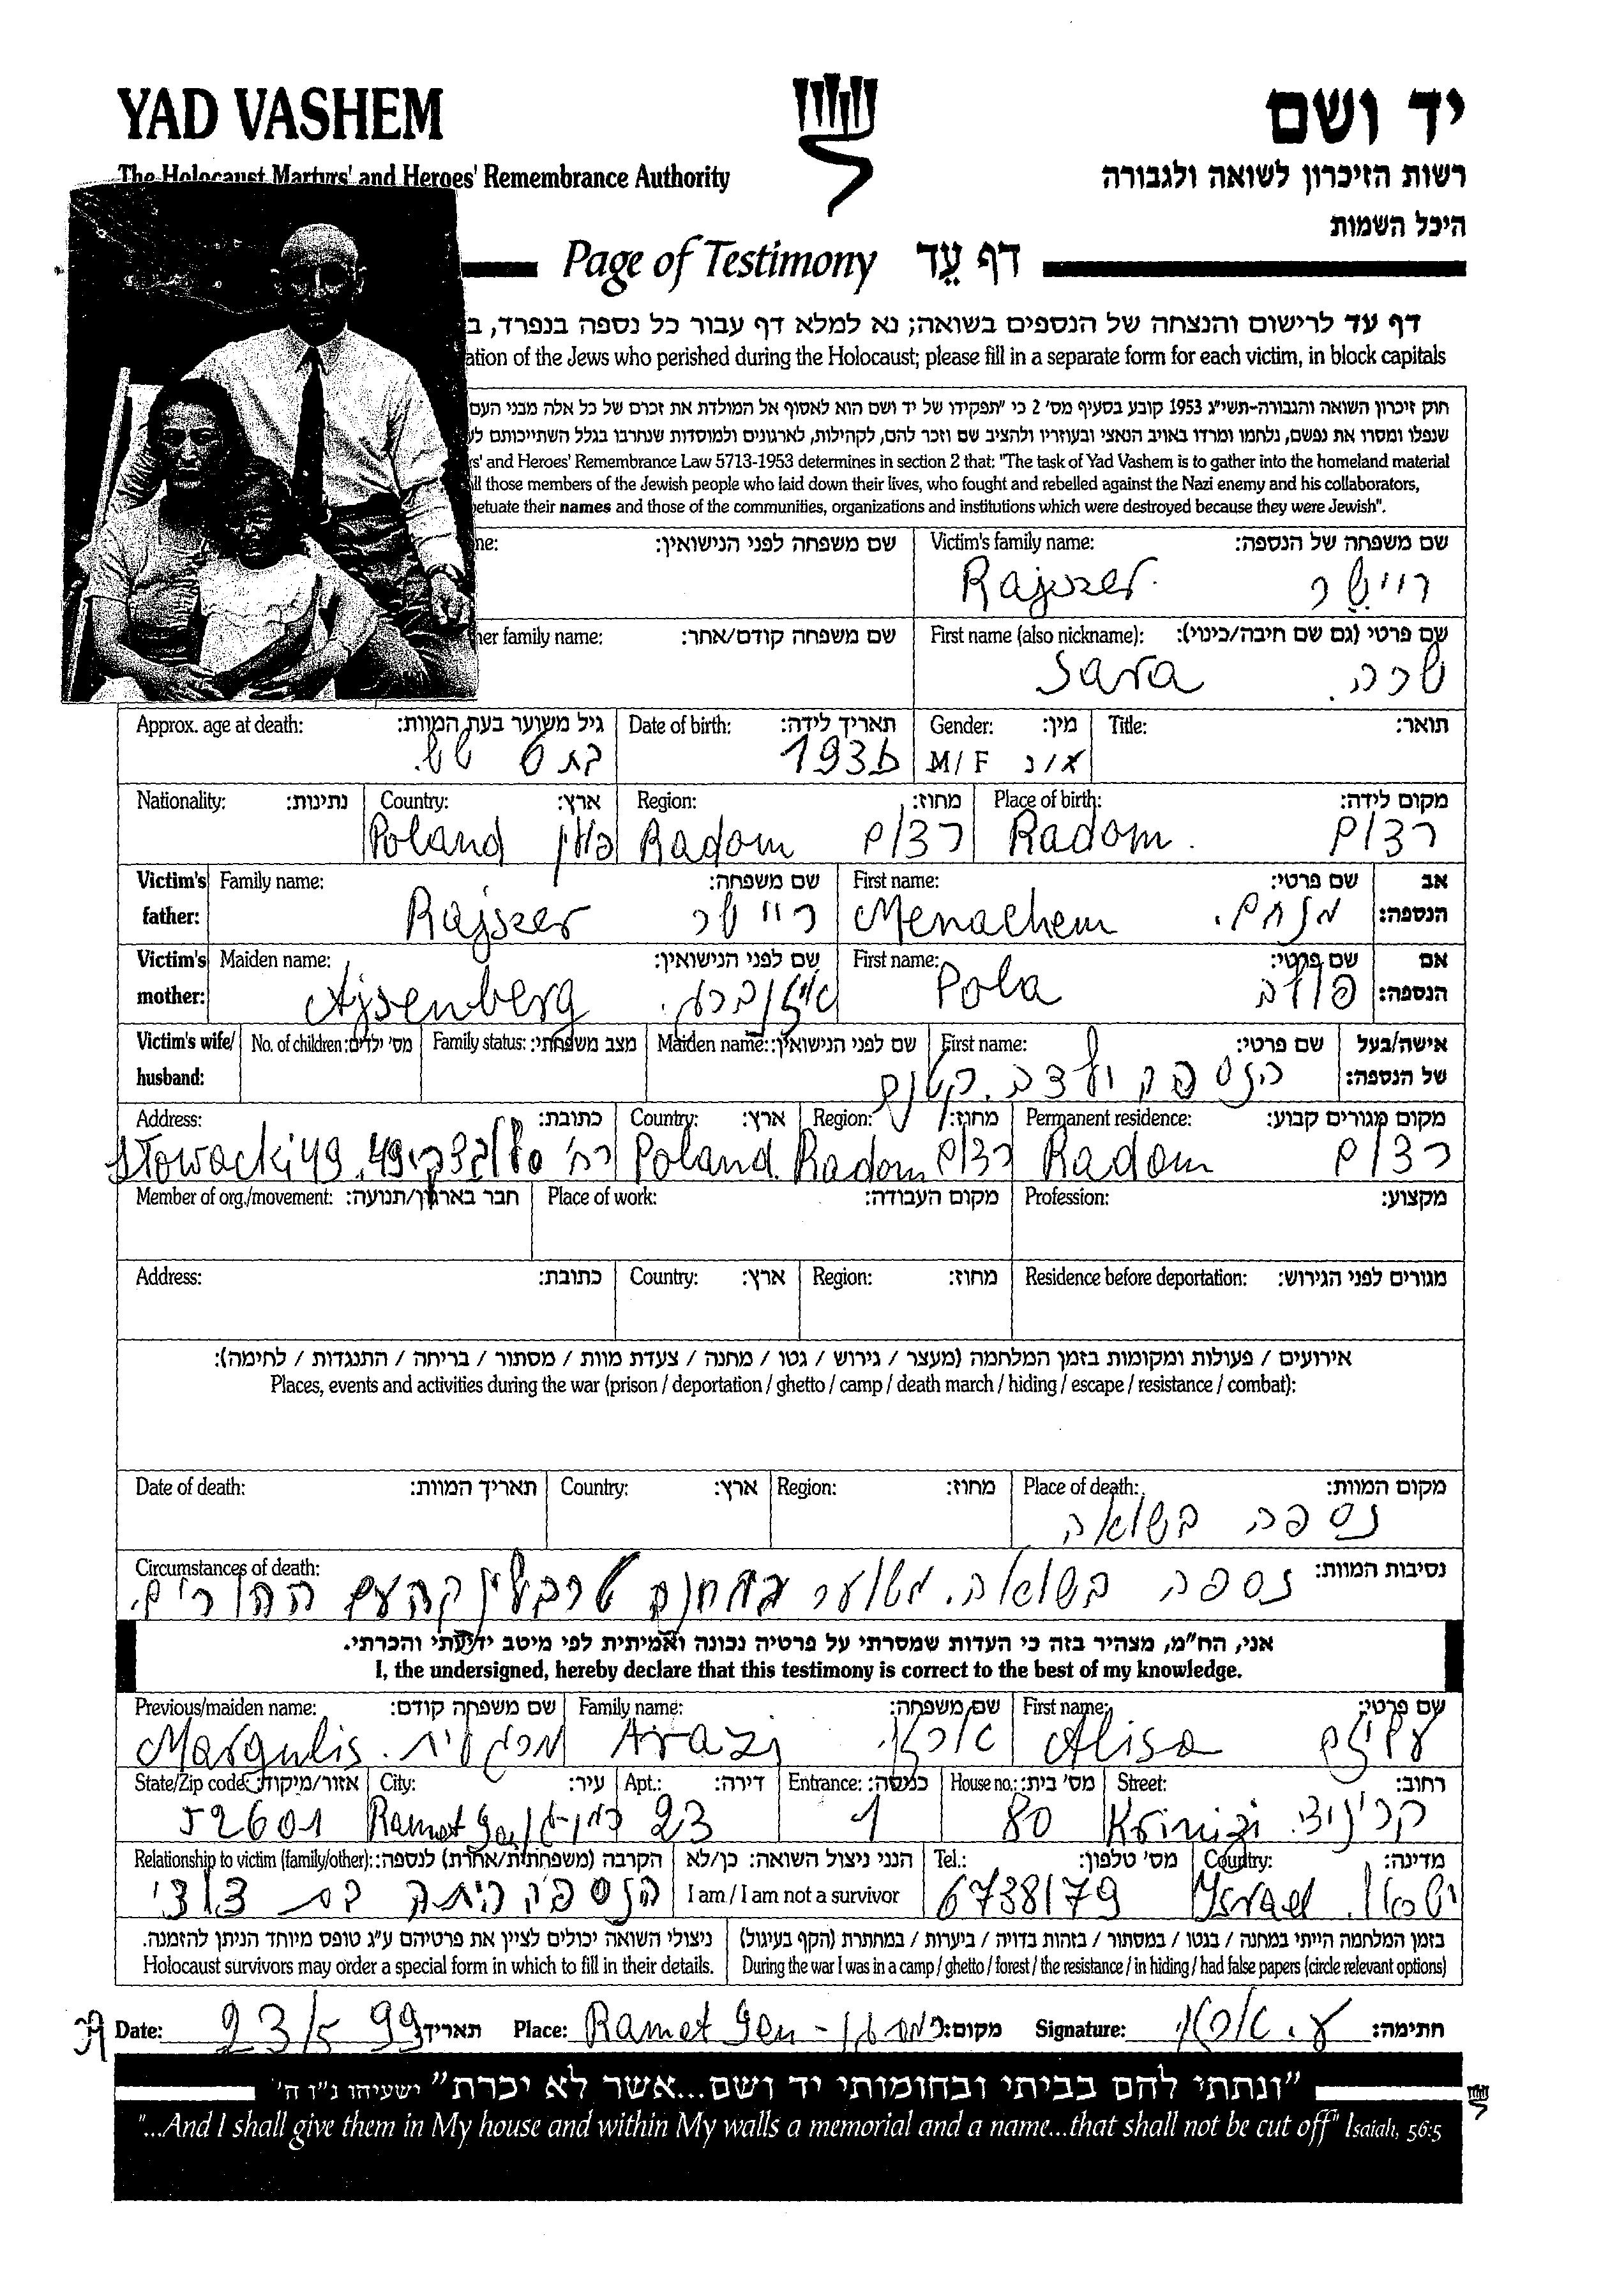 YAD VASHEM
יד ושם
The Holocaust Martyrs' and Heroes' Remembrance Authority
רשות הזיכרון לשואה ולגבורה
היכל השמות
Page of Testimony דף עֵד
דף עד לרישום והנצחה של הנספים בשואה; נא למלא דף עבור כל נספה בנפרד, ב
ation of the Jews who perished during the Holocaust; please fill in a separate form for each victim, in block capitals
חוק זיכרון השואה והגבורה-תשי"ג 1953 קובע בסעיף מס' 2 כי "תפקידו של יד ושם הוא לאסוף אל המולדת את זכרם של כל אלה מבני העם
שנפלו ומסרו את נפשם, נלחמו ומרדו באויב הנאצי ובעוזריו ולהציב שם וזכר להם, לקהילות, לארגונים ולמוסדות שנחרבו בגלל השתייכותם לע
s' and Heroes' Remembrance Law 5713-1953 determines in section 2 that: "The task of Yad Vashem is to gather into the homeland material
ll those members of the Jewish people who laid down their lives, who fought and rebelled against the Nazi enemy and his collaborators,
etuate their names and those of the communities, organizations and institutions which were destroyed because they were Jewish".
ne: שם משפחה לפני הנישואין: Victim's family name: שם משפחה של הנספה:
Rajszer ריישר
her family name: שם משפחה קודם/אחר: First name (also nickname): שם פרטי (גם שם חיבה/כינוי):
Sara שרה
Approx. age at death: גיל משוער בעת המוות: Date of birth: תאריך לידה: Gender: מין: Title: תואר:
בת 6 1936 M/F ז/נ
Nationality: נתינות: Country: ארץ: Region: מחוז: Place of birth: מקום לידה:
Poland פולין Radom רדום Radom רדום
Victim's father: Family name: שם משפחה: First name: שם פרטי: אב הנספה:
Rajszer ריישר Menachem מנחם
Victim's mother: Maiden name: שם לפני הנישואין: First name: שם פרטי: אם הנספה:
Ajsenberg אייזנברג Pola פולה
Victim's wife/husband: No. of children: מס' ילדים: Family status: מצב משפחתי: Maiden name: שם לפני הנישואין: First name: שם פרטי: אישה/בעל של הנספה:
הנספה ילדה קטנה
Address: כתובת: Country: ארץ: Region: מחוז: Permanent residence: מקום מגורים קבוע:
Słowacki 49 רח' סלובצקי 49 Poland Radom רדום Radom רדום
Member of org./movement: חבר בארגון/תנועה: Place of work: מקום העבודה: Profession: מקצוע:
Address: כתובת: Country: ארץ: Region: מחוז: Residence before deportation: מגורים לפני הגירוש:
אירועים / פעולות ומקומות בזמן המלחמה (מעצר / גירוש / גטו / מחנה / צעדת מוות / מסתור / בריחה / התנגדות / לחימה):
Places, events and activities during the war (prison / deportation / ghetto / camp / death march / hiding / escape / resistance / combat):
Date of death: תאריך המוות: Country: ארץ: Region: מחוז: Place of death: מקום המוות:
נספה בשואה
Circumstances of death: נסיבות המוות:
נספה בשואה. משוער במחנה טרבלינקה עם ההורים.
אני, הח"מ, מצהיר בזה כי העדות שמסרתי על פרטיה נכונה ואמיתית לפי מיטב ידיעתי והכרתי.
I, the undersigned, hereby declare that this testimony is correct to the best of my knowledge.
Previous/maiden name: שם משפחה קודם: Family name: שם משפחה: First name: שם פרטי:
Margulis מרגלית Arazi ארזי Alisa עליזה
State/Zip code: אזור/מיקוד: City: עיר: Apt.: דירה: Entrance: כניסה: House no.: מס' בית: Street: רחוב:
52601 Ramat Gan רמת-גן 23 1 80 Krinizi קריניצי
Relationship to victim (family/other): הקרבה (משפחתית/אחרת) לנספה: הנני ניצול השואה: כן/לא Tel.: מס' טלפון: Country: מדינה:
הנספה היתה בת דודי I am / I am not a survivor 6738179 Israel ישראל
ניצולי השואה יכולים לציין את פרטיהם ע"ג טופס מיוחד הניתן להזמנה. בזמן המלחמה הייתי במחנה / בגטו / במסתור / בזהות בדויה / ביערות / במחתרת (הקף בעיגול)
Holocaust survivors may order a special form in which to fill in their details. During the war I was in a camp / ghetto / forest / the resistance / in hiding / had false papers (circle relevant options)
Date: 23/5 99 תאריך Place: Ramat Gan - רמת גן מקום: Signature: ע. ארזי חתימה:
"ונתתי להם בביתי ובחומותי יד ושם...אשר לא יכרת" ישעיהו נ"ו ה'
"...And I shall give them in My house and within My walls a memorial and a name...that shall not be cut off" Isaiah, 56:5